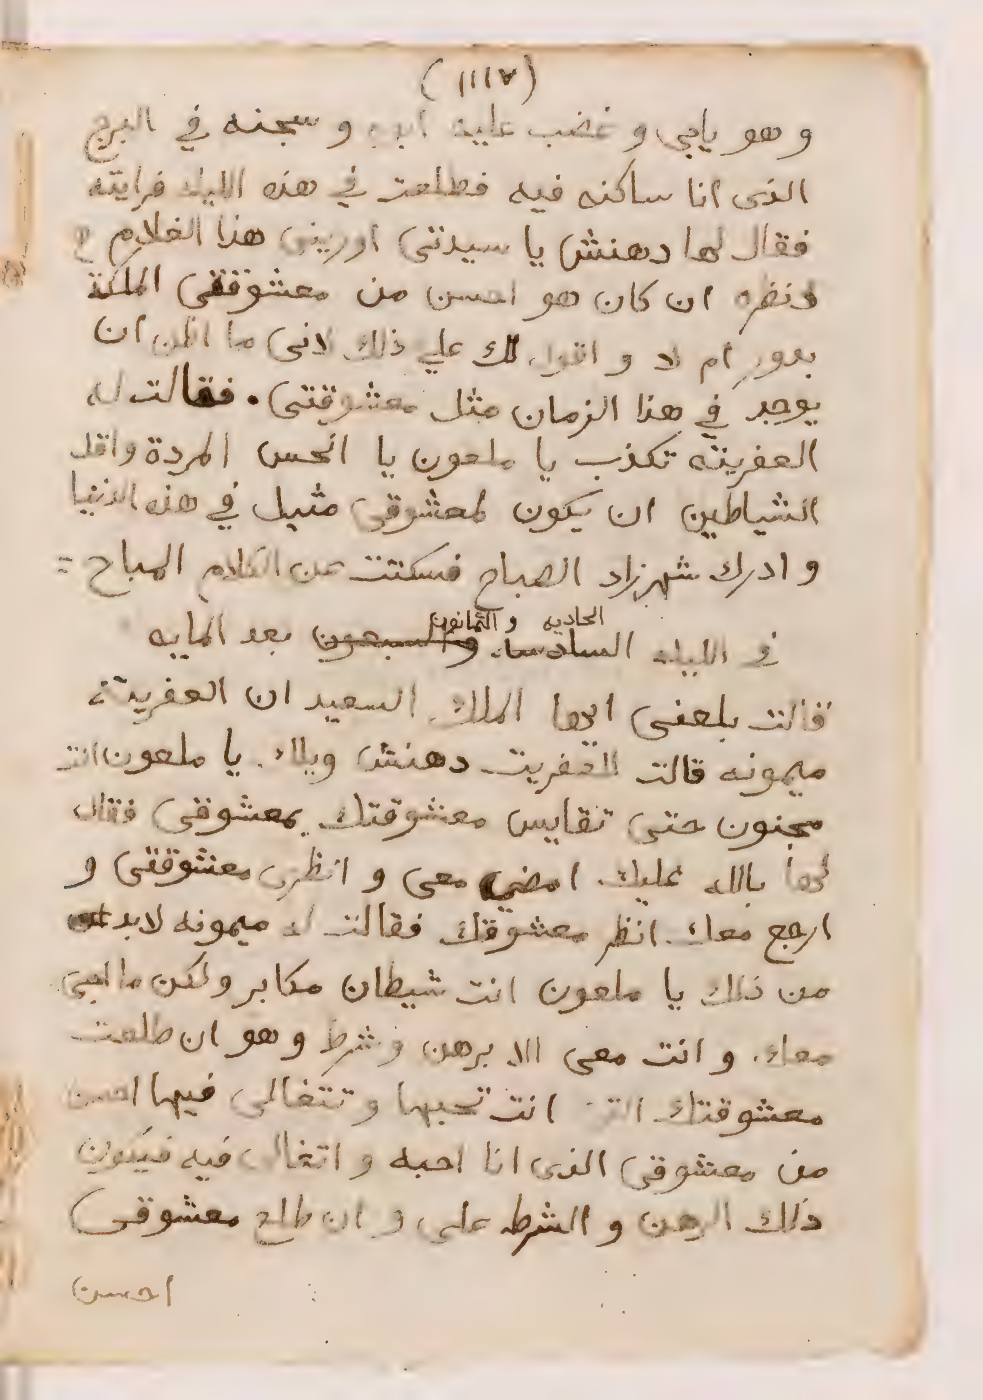 (١١١٧)
و هو يابي و غضب عليه ابوه و سجنه في البرج
الذى انا ساكنه فيه فطلعت في هذه الليله فرايته
فقال لها دهنش يا سيدتى اورينى هذا الغلام
لانظره ان كان هو احسن من معشوقتى الملكة
بدور ام لا و اقول لك علي ذلك لانى ما اظن ان
يوجد في هذا الزمان مثل معشوقتى • فقالت له
العفريته تكذب يا ملعون يا انحس المردة واقل
الشياطين ان يكون لمعشوقى مثيل في هذه الدنيا
و ادرك شهرزاد الصباح فسكتت عن الكلام المباح =
الحاديه و الثمانون
في الليله السادسه والسبعون بعد المايه
قالت بلغنى ايها الملك السعيد ان العفريته
ميمونه قالت للعفريت دهنش ويلك يا ملعون انت
مجنون حتى تقايس معشوقتك بمعشوقى فقال
لها بالله عليك امضي معى و انظرى معشوقتى و
ارجع معك انظر معشوقك فقالت له ميمونه لابد
من ذلك يا ملعون انت شيطان مكابر ولكن ما اجى
معك و انت معى الا برهن و شرط و هو ان طلعت
معشوقتك التى انت تحبها و تتغالى فيها احسن
من معشوقى الذى انا احبه و اتغالى فيه فيكون
ذلك الرهن و الشرط على و ان طلع معشوقى
احسن